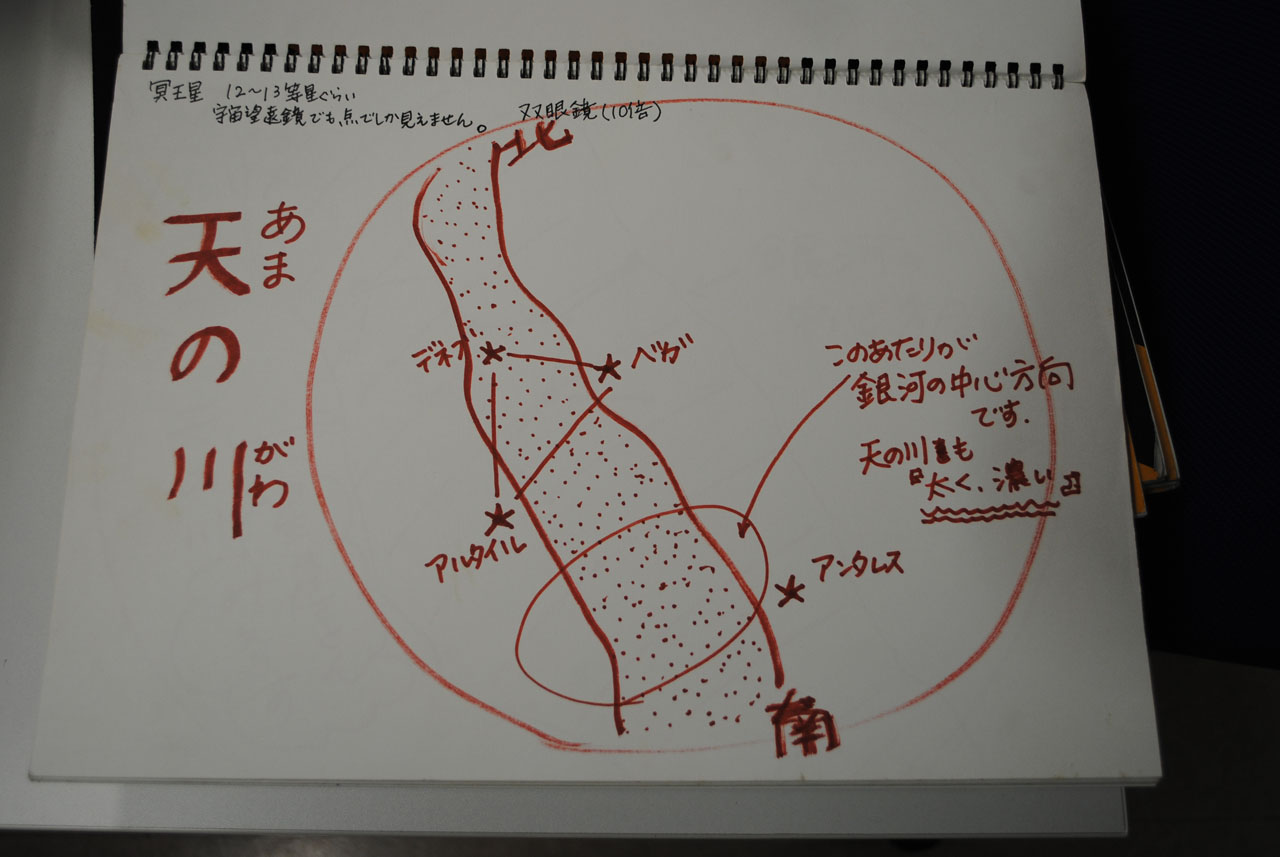 冥王星 12〜13等星ぐらい
宇宙望遠鏡でも、点でしか見えません。
双眼鏡(10倍)
北
天の川
あま
がわ
デネブ
ベガ
アルタイル
このあたりが
銀河の中心方向
です.
天の川も
『太く、濃い』
アンタレス
南